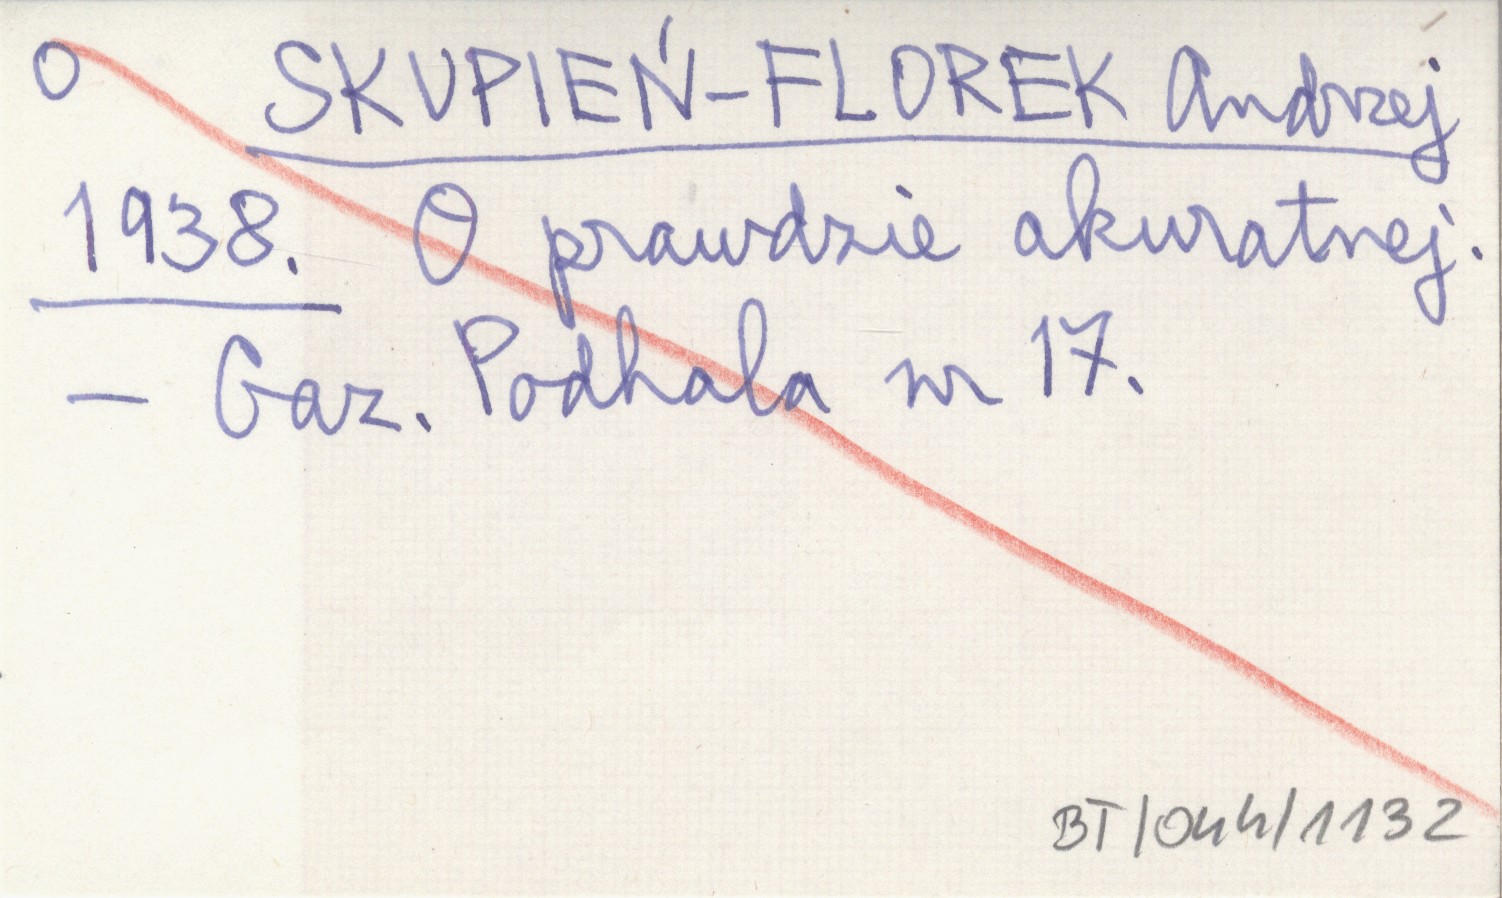 O SKUPIEŃ-FLOREK Andrzej
1938. O prawdzie akuratnej.
- Gaz. Podhala nr 17.
BT/044/1132